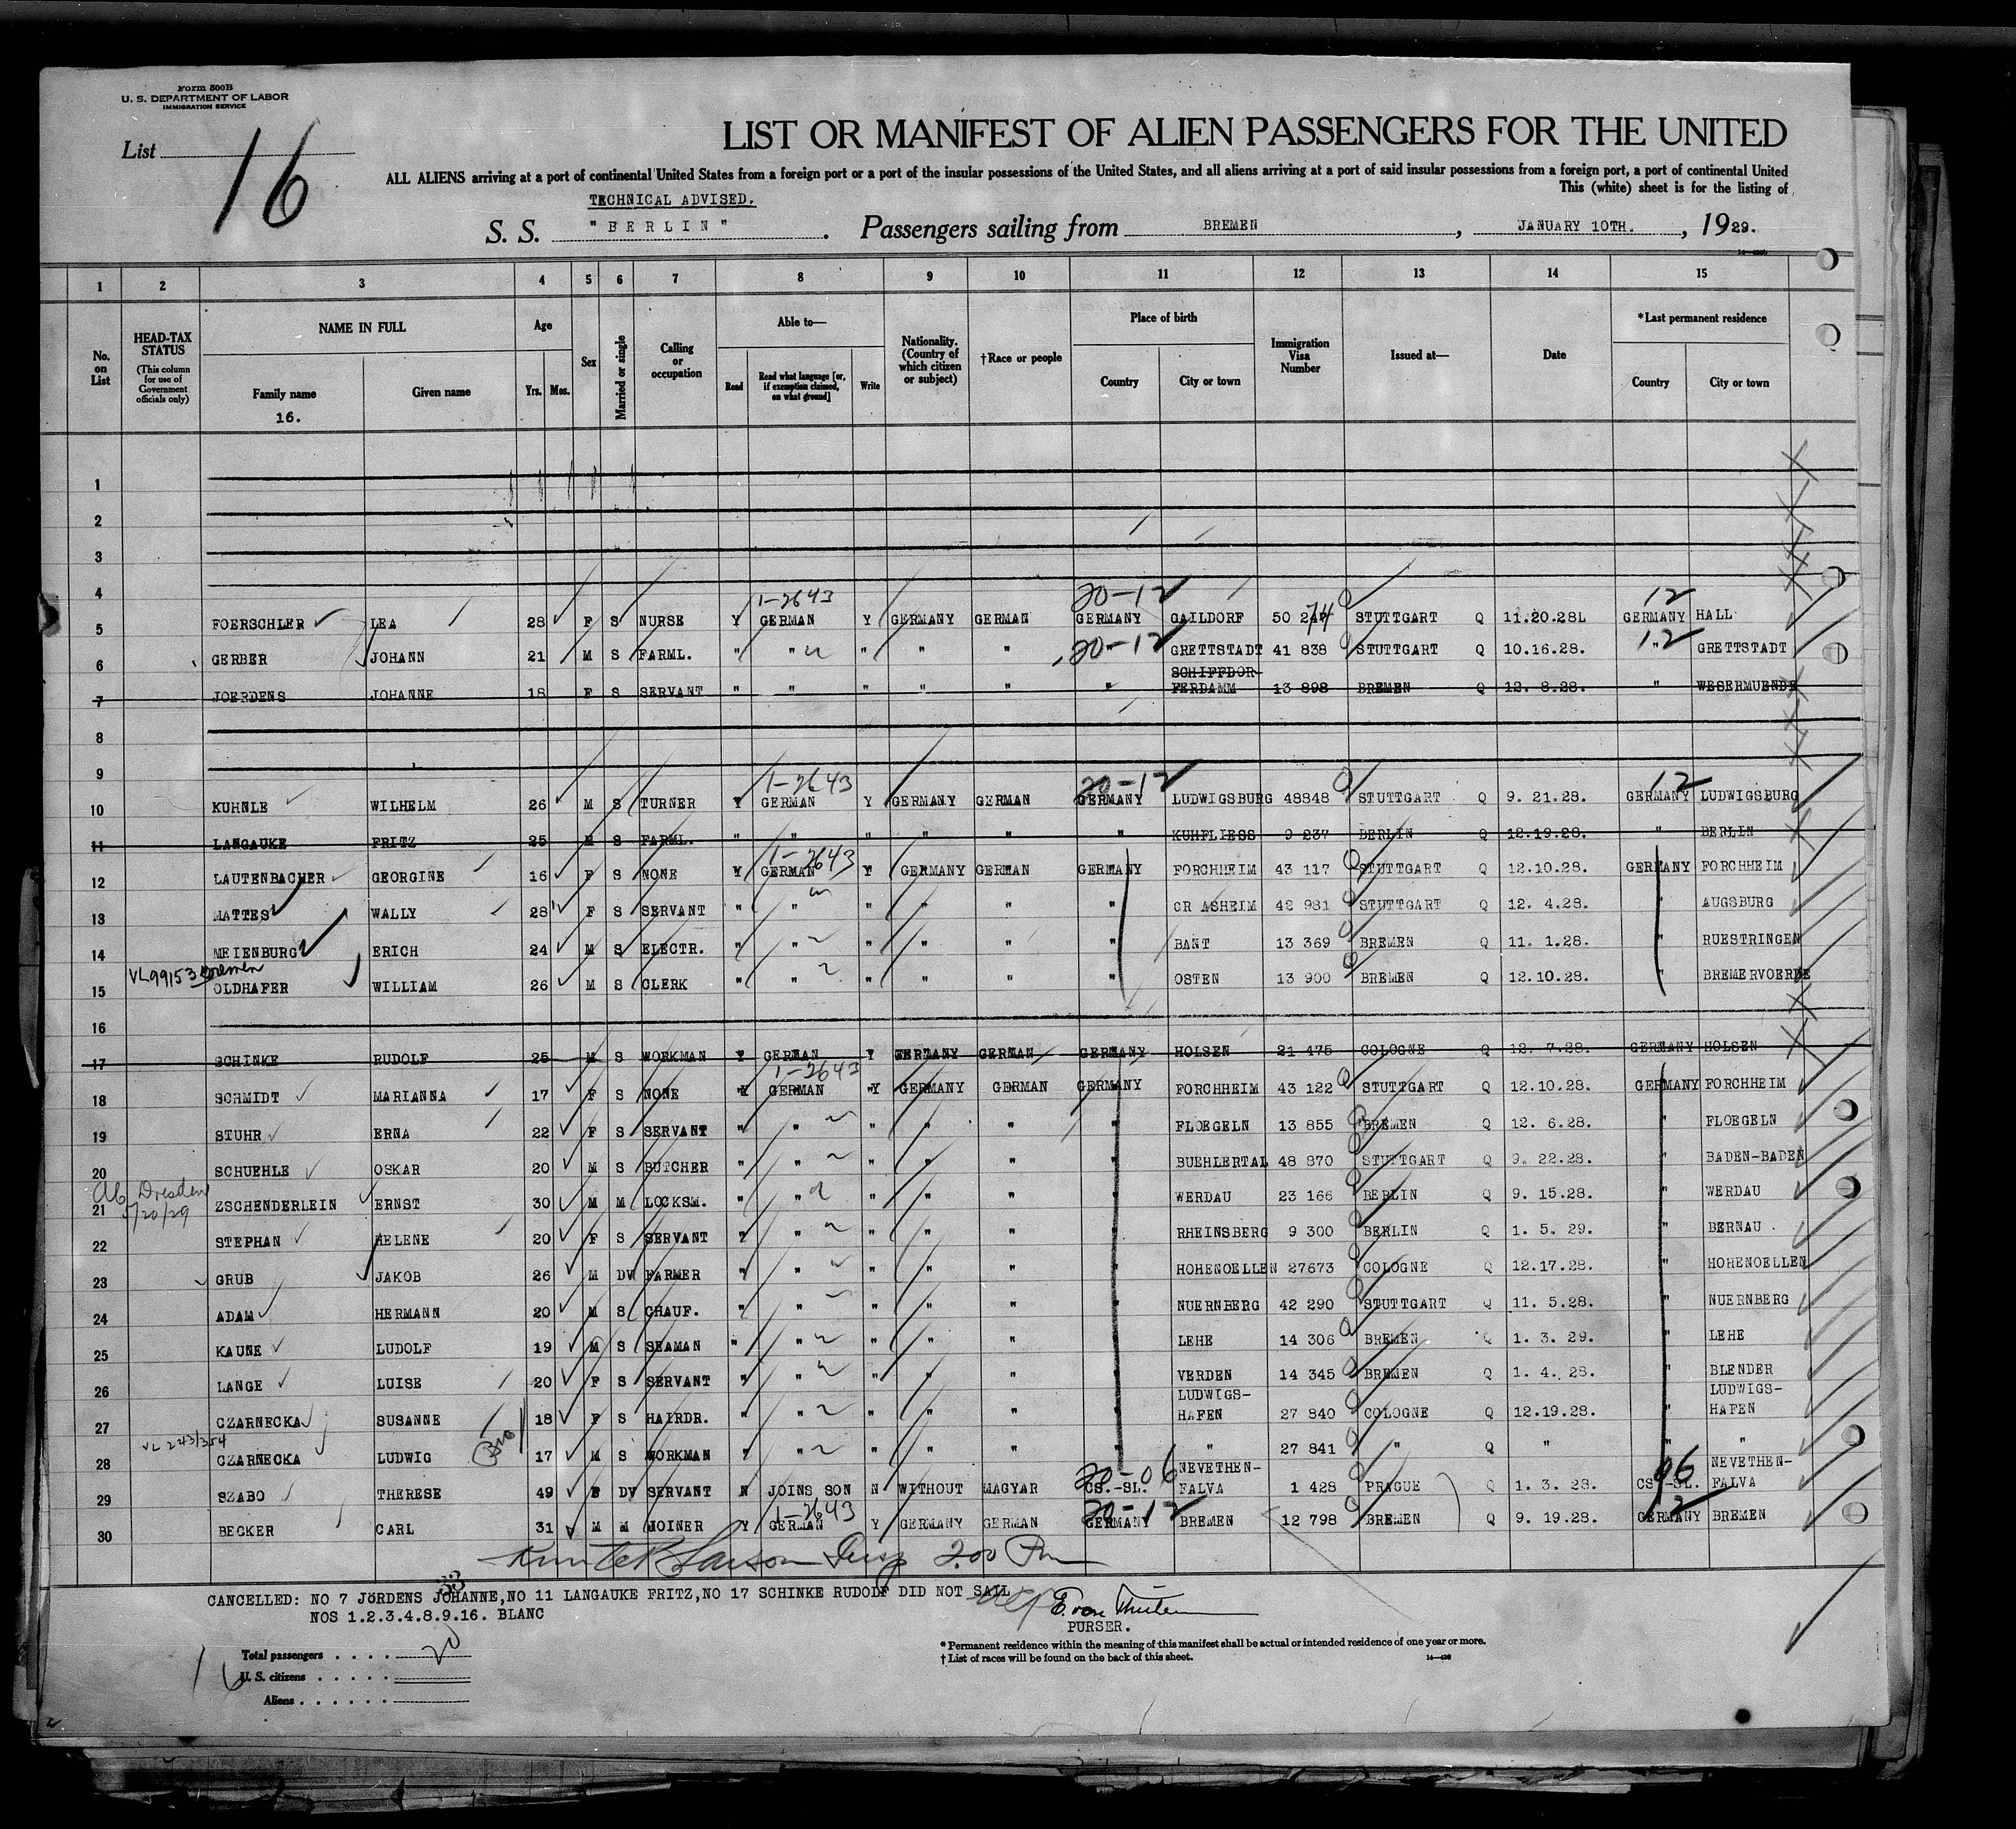 Form 500B
U. S. DEPARTMENT OF LABOR
IMMIGRATION SERVICE
List 16
LIST OR MANIFEST OF ALIEN PASSENGERS FOR THE UNITED
ALL ALIENS arriving at a port of continental United States from a foreign port or a port of the insular possessions of the United States, and all aliens arriving at a port of said insular possessions from a foreign port, a port of continental United
This (white) sheet is for the listing of
TECHNICAL ADVISED.
S. S. "BERLIN". Passengers sailing from BREMEN, JANUARY 10TH., 1929.
1 2 3 4 5 6 7 8 9 10 11 12 13 14 15
No. on List
HEAD-TAX STATUS (This column for use of Government officials only)
NAME IN FULL
Family name
16.
Given name
Age
Yrs. Mos.
Sex
Married or single
Calling or occupation
Able to—
Read
Read what language [or, if exemption claimed, on what ground]
Write
Nationality. (Country of which citizen or subject)
†Race or people
Place of birth
Country
City or town
Immigration Visa Number
Issued at—
Date
*Last permanent residence
Country
City or town
1
2
3
4
1-2643 20-12 12
5 FOERSCHLER LEA 28 F S NURSE Y GERMAN Y GERMANY GERMAN GERMANY GAILDORF 50 274 STUTTGART Q 11.20.28L GERMANY HALL
20-12 12
6 GERBER JOHANN 21 M S FARML. " " " " " " GRETTSTADT 41 838 STUTTGART Q 10.16.28. " GRETTSTADT
SCHIFFDOR-
7 JOERDENS JOHANNE 18 F S SERVANT " " " " " " FERDAMM 13 898 BREMEN Q 12. 8.28. " WESERMUENDE
8
9
1-2643 20-12 12
10 KUHNLE WILHELM 26 M S TURNER Y GERMAN Y GERMANY GERMAN GERMANY LUDWIGSBURG 48848 STUTTGART Q 9. 21.28. GERMANY LUDWIGSBURG
11 LANGAUKE FRITZ 25 M S FARML. " " " " " " KUHFLIESS 9 237 BERLIN Q 12.19.28. " BERLIN
1-2643
12 LAUTENBACHER GEORGINE 16 F S NONE Y GERMAN Y GERMANY GERMAN GERMANY FORCHHEIM 43 117 STUTTGART Q 12.10.28. GERMANY FORCHHEIM
13 MATTES WALLY 28 F S SERVANT " " " " " " CR ASHEIM 42 981 STUTTGART Q 12. 4.28. " AUGSBURG
14 MEIENBURG ERICH 24 M S ELECTR. " " " " " " BANT 13 369 BREMEN Q 11. 1.28. " RUESTRINGEN
VL99153 Bremen
15 OLDHAFER WILLIAM 26 M S CLERK " " " " " " OSTEN 13 900 BREMEN Q 12.10.28. " BREMERVOERDE
16
17 SCHINKE RUDOLF 25 M S WORKMAN Y GERMAN Y GERMANY GERMAN GERMANY HOLSEN 21 475 COLOGNE Q 12. 7.28. GERMANY HOLSEN
1-2643
18 SCHMIDT MARIANNA 17 F S NONE "Y GERMAN "Y GERMANY GERMAN GERMANY FORCHHEIM 43 122 STUTTGART Q 12.10.28. GERMANY FORCHHEIM
19 STUHR ERNA 22 F S SERVANT " " " " " " FLOEGELN 13 855 BREMEN Q 12. 6.28. " FLOEGELN
20 SCHUEHLE OSKAR 20 M S BUTCHER " " " " " " BUEHLERTAL 48 870 STUTTGART Q 9. 22.28. " BADEN-BADEN
Dresden 5/20/29
21 ZSCHENDERLEIN ERNST 30 M M LOCKSM. " " " " " " WERDAU 23 166 BERLIN Q 9. 15.28. " WERDAU
22 STEPHAN HELENE 20 F S SERVANT " " " " " " RHEINSBERG 9 300 BERLIN Q 1. 5. 29. " BERNAU
23 GRUB JAKOB 26 M DV FARMER " " " " " " HOHENOELLEN 27673 COLOGNE Q 12.17.28. " HOHENOELLEN
24 ADAM HERMANN 20 M S CHAUF. " " " " " " NUERNBERG 42 290 STUTTGART Q 11. 5.28. " NUERNBERG
25 KAUNE LUDOLF 19 M S SEAMAN " " " " " " LEHE 14 306 BREMEN Q 1. 3. 29. " LEHE
26 LANGE LUISE 20 F S SERVANT " " " " " " VERDEN 14 345 BREMEN Q 1. 4. 28. " BLENDER
LUDWIGS- LUDWIGS-
27 CZARNECKA SUSANNE 18 F S HAIRDR. " " " " " " HAFEN 27 840 COLOGNE Q 12.19.28. " HAFEN
VL 243/354 Bro
28 CZARNECKA LUDWIG 17 M S WORKMAN " " " " " " " 27 841 " Q " " "
20-06 NEVETHEN- 06 NEVETHEN-
29 SZABO THERESE 49 F DV SERVANT N JOINS SON N WITHOUT MAGYAR CS.-SL. FALVA 1 428 PRAGUE Q 1. 3. 28. CS.-SL. FALVA
1-2643 20-12 12
30 BECKER CARL 31 M M MOINER Y GERMAN Y GERMANY GERMAN GERMANY BREMEN 12 798 BREMEN Q 9. 19.28. GERMANY BREMEN
33
CANCELLED: NO 7 JÖRDENS JOHANNE,NO 11 LANGAUKE FRITZ,NO 17 SCHINKE RUDOLF DID NOT SAIL
NOS 1.2.3.4.8.9.16. BLANC
PURSER.
Total passengers . . . . 20
U. S. citizens . . . . .
Aliens . . . . . .
16
* Permanent residence within the meaning of this manifest shall be actual or intended residence of one year or more.
† List of races will be found on the back of this sheet.